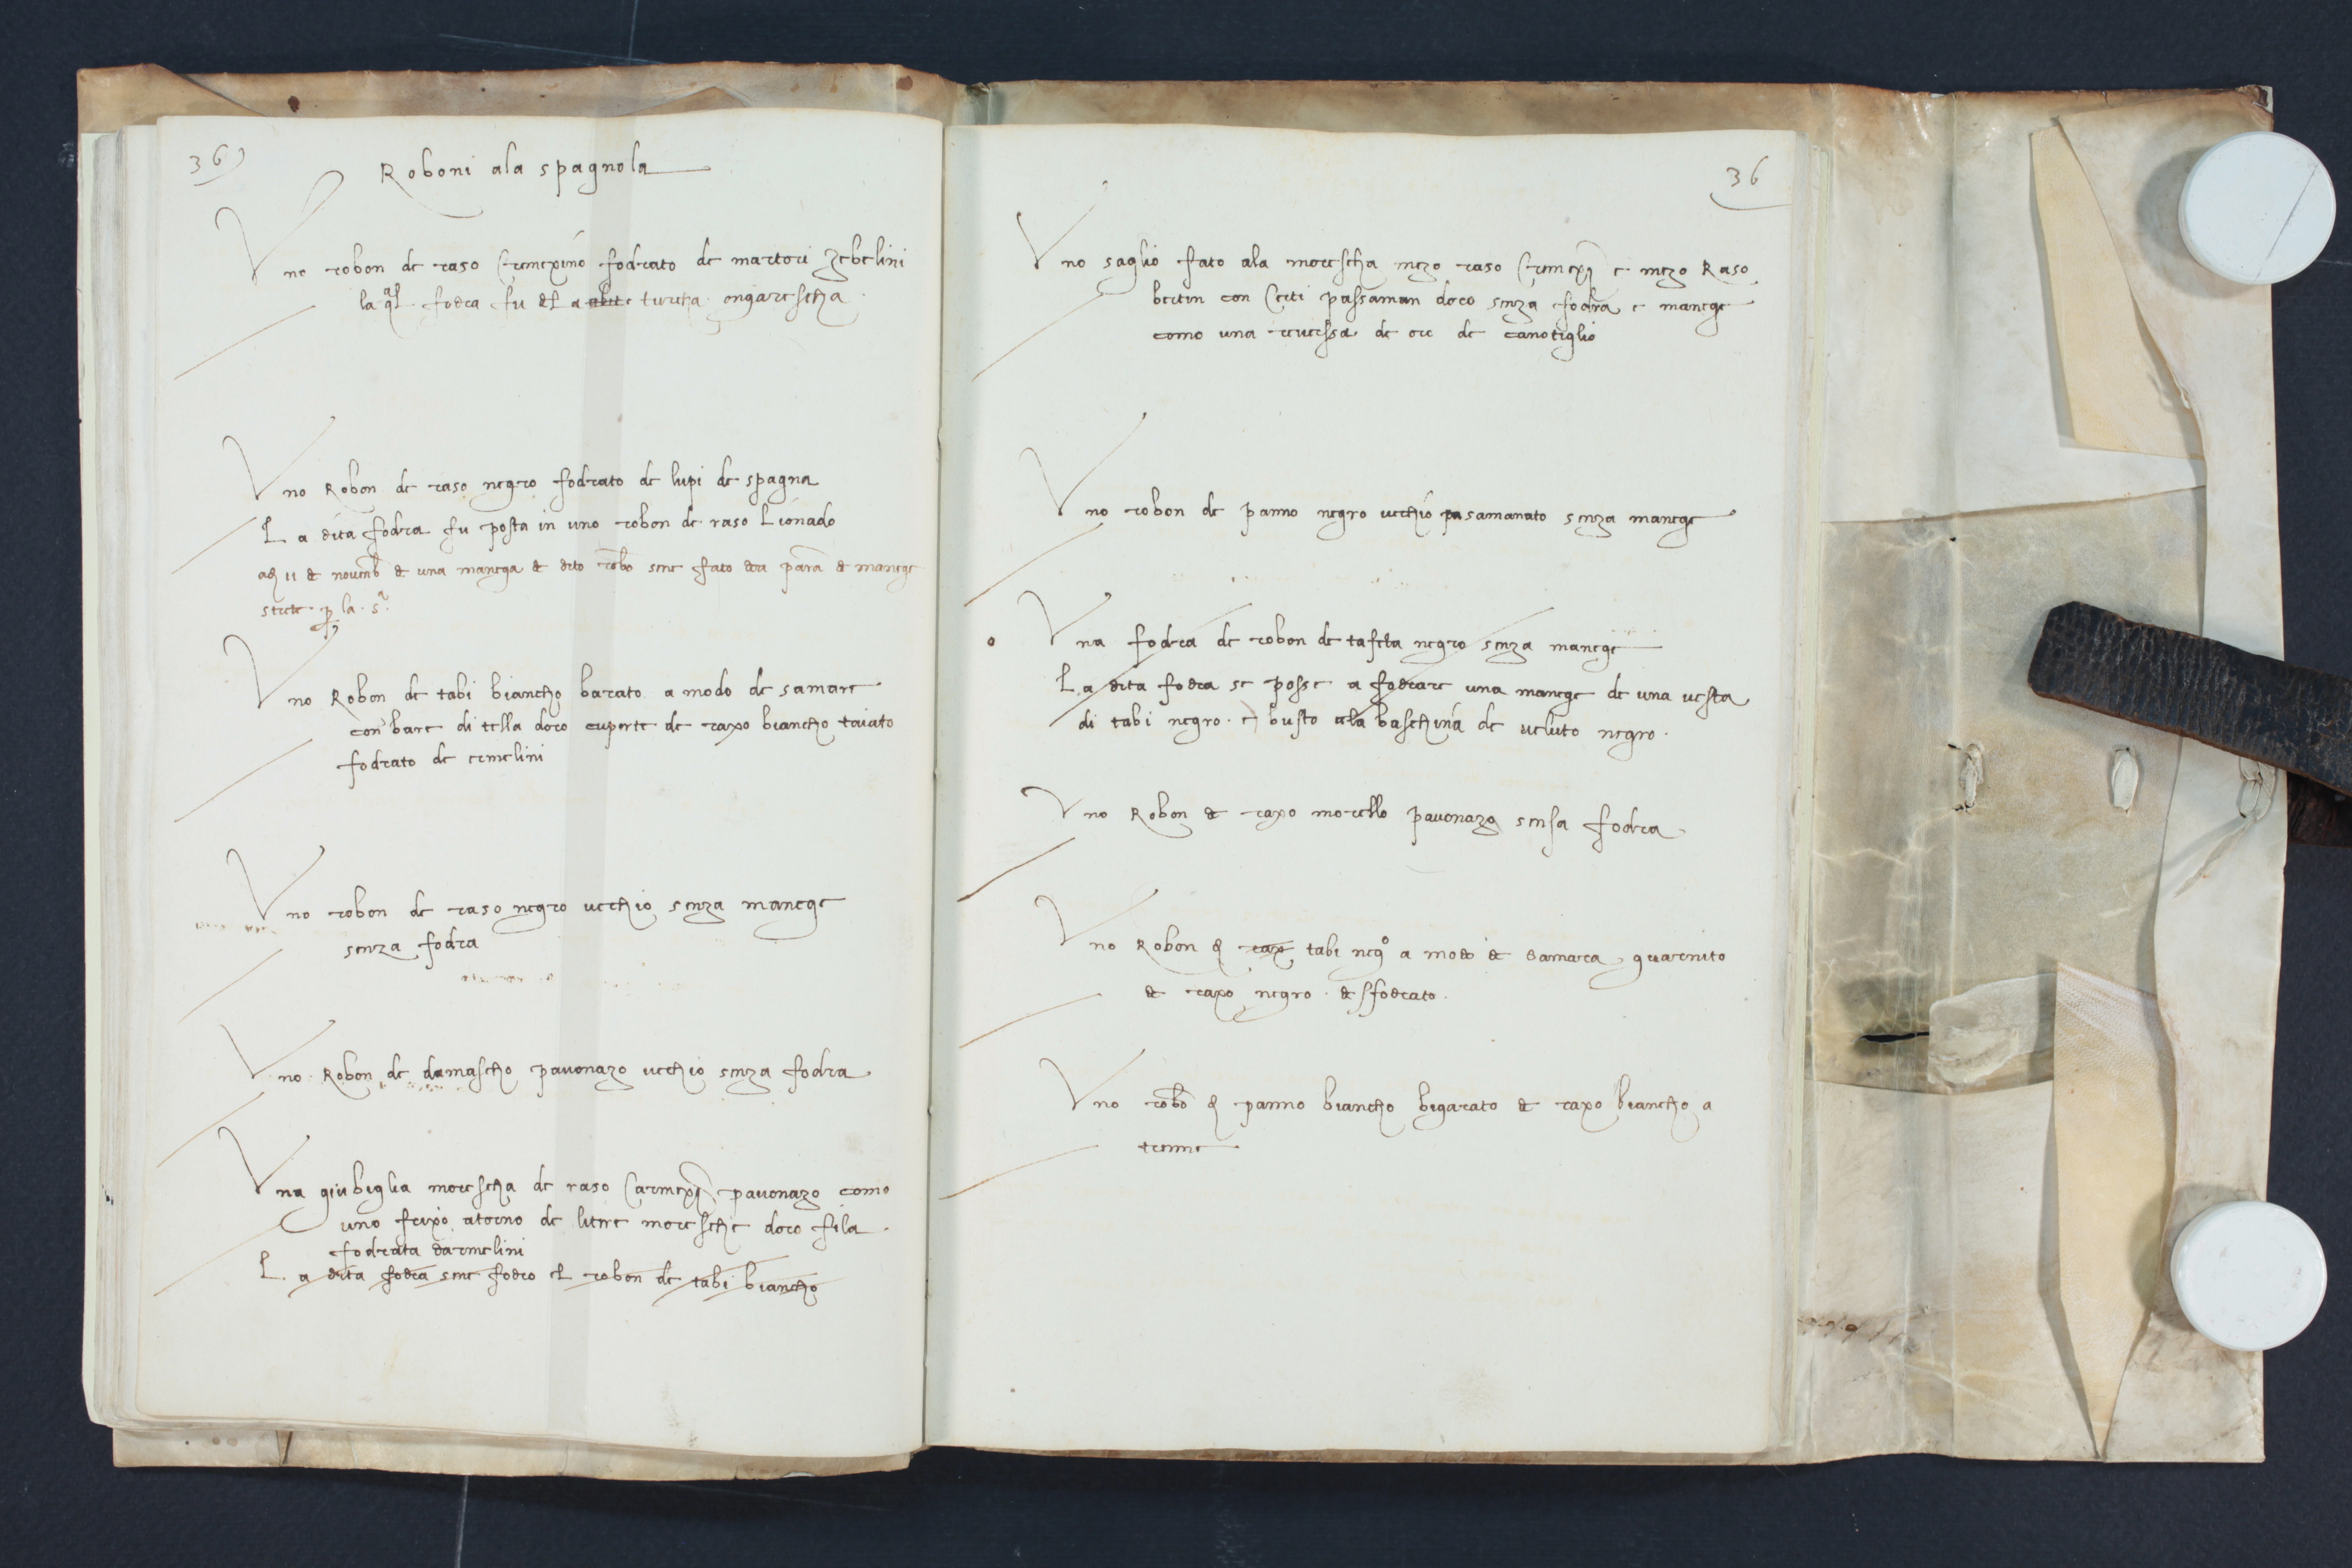 36
Roboni ala spagnola
Uno robon de raso Cremexino fodrato de martori zebelini
la qal fodra fu turcha ongarescha
Uno Robon de raso negro fodrato de lupi de spagna
La dita fodra fu posta in uno robon de raso Lionado
adi 11 de novenb de una manega de dito robo sene fato dra para de manege
strete per la sª
Uno Robon de tabi biancho barato a modo de samare
con bare di tella doro cuperte de raxo biancho taiato
fodrato de ermelini
Uno robon de raso negro vechio senza manege
senza fodra
Uno Robon de damascho pavonazo vechio senza fodra
Una giubiglia morescha de raso Carmexi pavonazo como
uno frixo atorno de litere moresche doro fila
fodrata darmelini
La dita fodra sene fodro el robon de tabi biancho
36
Uno saglio fato ala morescha mezo raso Cremexi e mezo Raso
bertin con Certi passaman doro senza fodra e manege
como una reverssa de ore de canotiglio
Uno robon de panno negro vechio pasamanato senza manege
Una fodra de robon de tafeta negro senza manege
La dita fodra se posse a fodrare una manege de una vesta
di tabi negro e busto ala baschina de veluto negro.
Uno Robon de raxo morello pavonazo sensa fodra
Uno Robon de rax tabi nego a modo de samara guarnito
de raxo negro desfodrato.
Uno robo de panno biancho bigarato de raxo biancho a
trenne